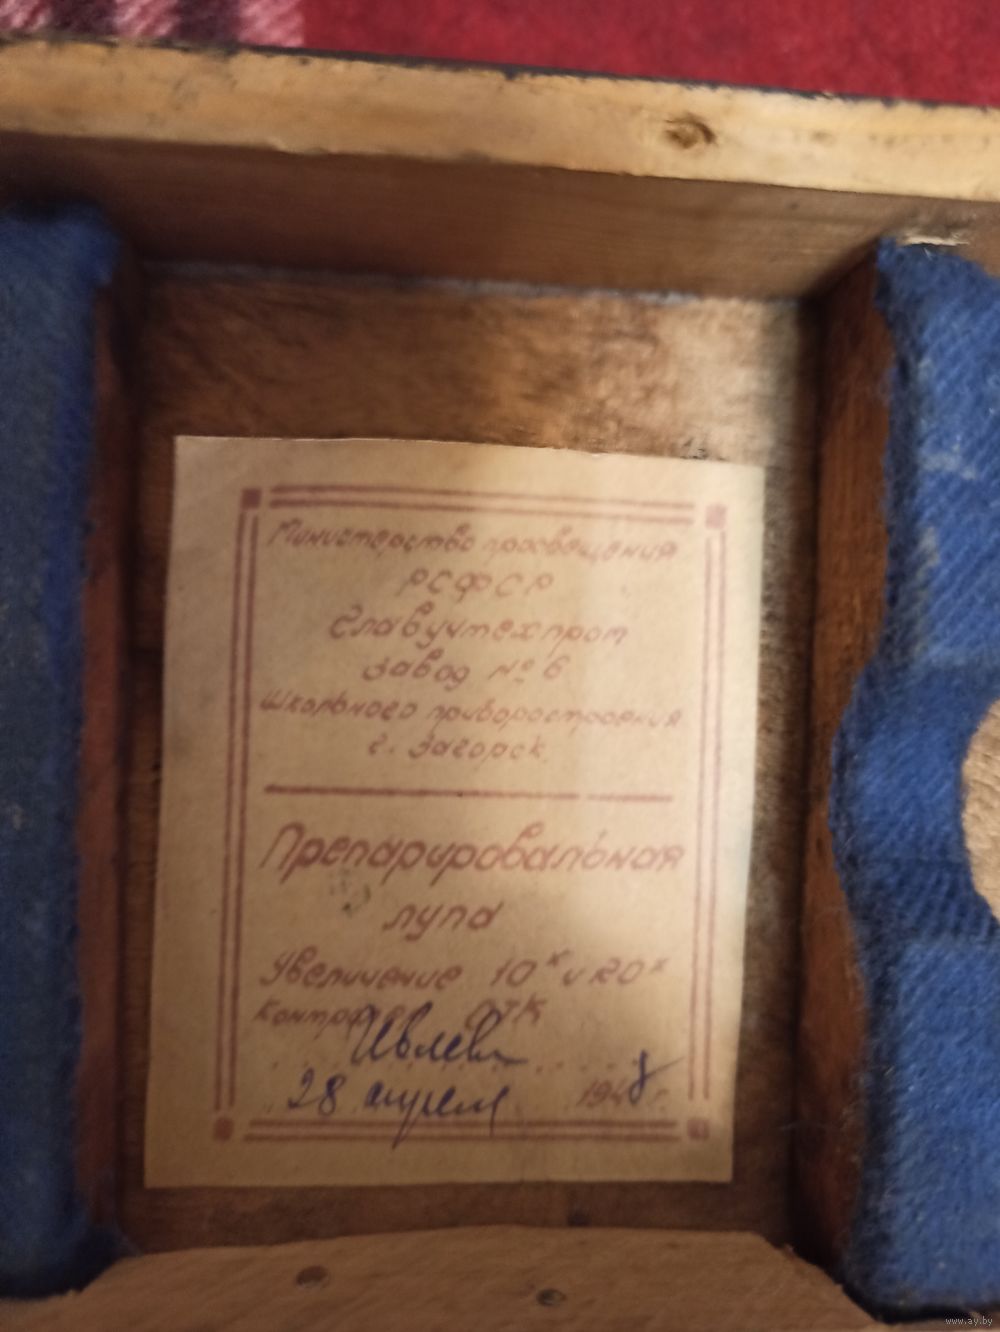 Министерство просвещения
РСФСР
Главучтехпром
Завод № 6
Школьного приборостроения
г. Загорск
Препаровальная
лупа
Увеличение 10ˣ и 20ˣ
Контролер ОТК
Ивлева
28 апреля 1948 г.
www.ay.by